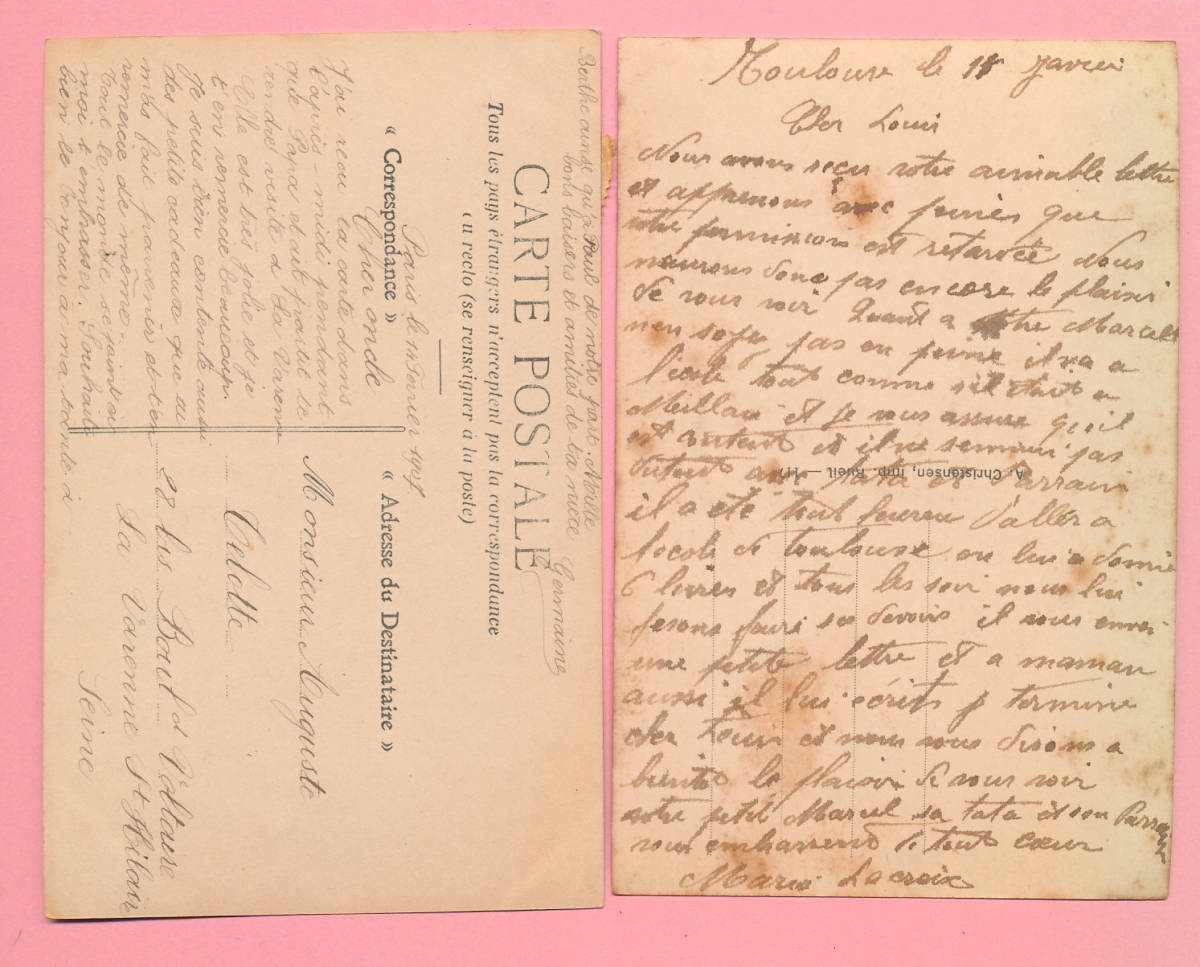 CARTE POSTALE
Tous les pays étrangers n'acceptent pas la correspondance
au recto (se renseigner à la poste)
« Correspondance »
« Adresse du Destinataire »
Paris le 14 1905
Cher oncle
J'ai recu la carte dans
l'après-midi pendant
que Papa était parti te
rendre visite a La Varenne
Elle est très jolie et je
t'en remercie beaucoup.
Je suis bien contente aussi
des petits cadeaux que tu
m'as fait parvenir et t'en
remercie de même.
Tout le monde se joint à
moi t'embrasser. Souhaite
bien le bonjour à ma tante
Berthe ainsi qu'à Paul de notre part. Mille
bons baisers et amitiés de ta nièce Germaine
Monsieur Auguste
28 bis Bould Voltaire
La Varenne St Hilaire
Seine
Toulouse le 15 Janvier
Cher Louis
Nous avons reçu votre aimable lettre
et apprenons avec que
votre permission est retardée Nous
naurons donc pas encore le plaisir
de vous voir Quant a Marcel
nen soyez pas en peine il va a
lecole tout comme sil était a
Meillau et je vous assure quil
est content et il ne sennui pas
Tata et Parrain
il a eté tout heureu d'aller a
lecole de toulouse on lui a donné
6 livres et tous les soir nous lui
fesons faire ses devoirs il vous envoi
une petite lettre et a maman
aussi il lui écrit je termine
cher Louis et nous vous disons a
bientot le plaisir de vous voir
votre petit Marcel sa tata et son Parrain
vous embrassent de tout cœur
Marie Lacroix
A. Christensen, imp. Rueil